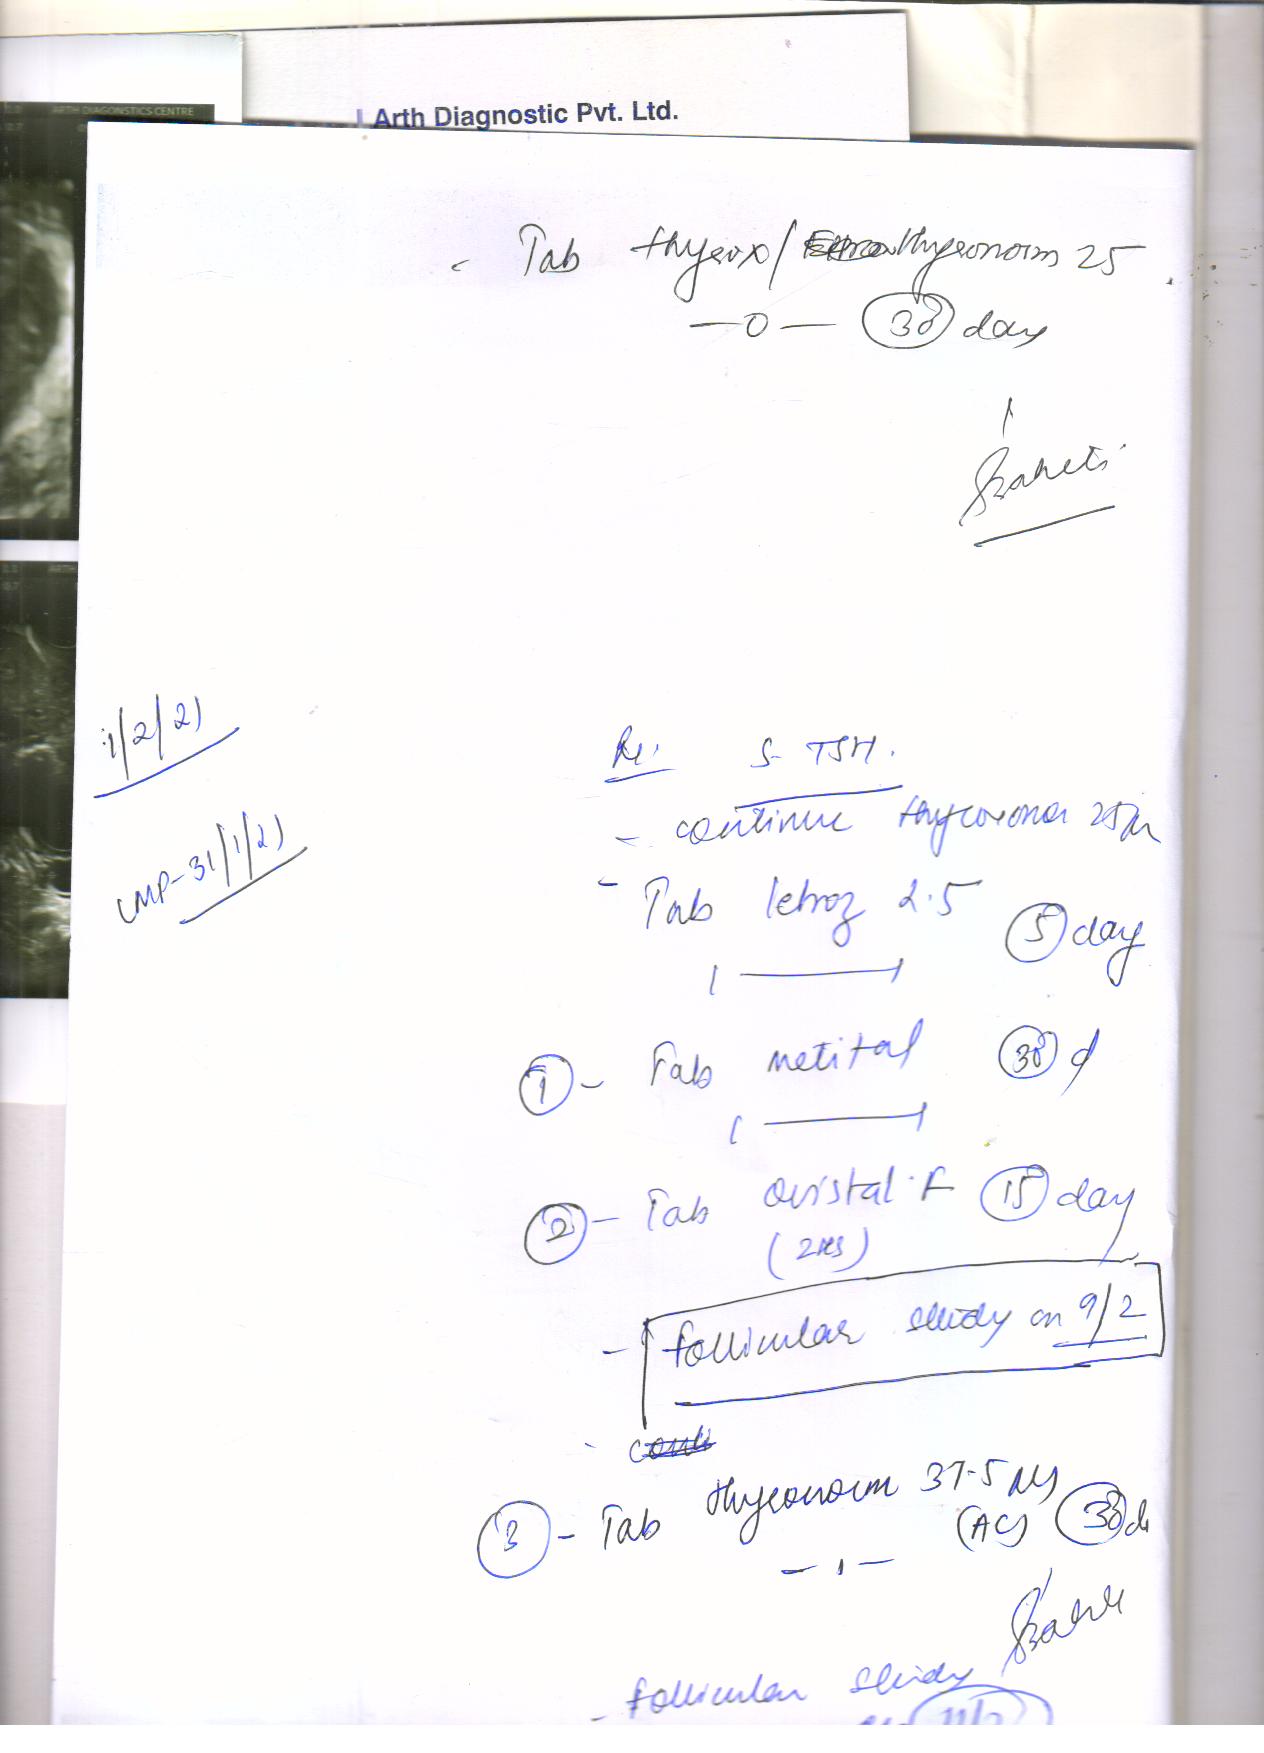 ARTH DIAGONSTICS CENTRE
Arth Diagnostic Pvt. Ltd.
- Tab thyrox/ thyronorm 25
—0— 30 day
1/2/21
LMP-31/1/21
S-TSH.
- continue thyronorm 25
- Tab letroz 2.5 5 day
1 —
1 - Tab metital 30 d
1 —
2 - Tab ovistal-F 15 day
- follicular study on 9/2
3 - Tab thyronorm 37.5
(AC) 30 d
- 1 -
- follicular study
11/2